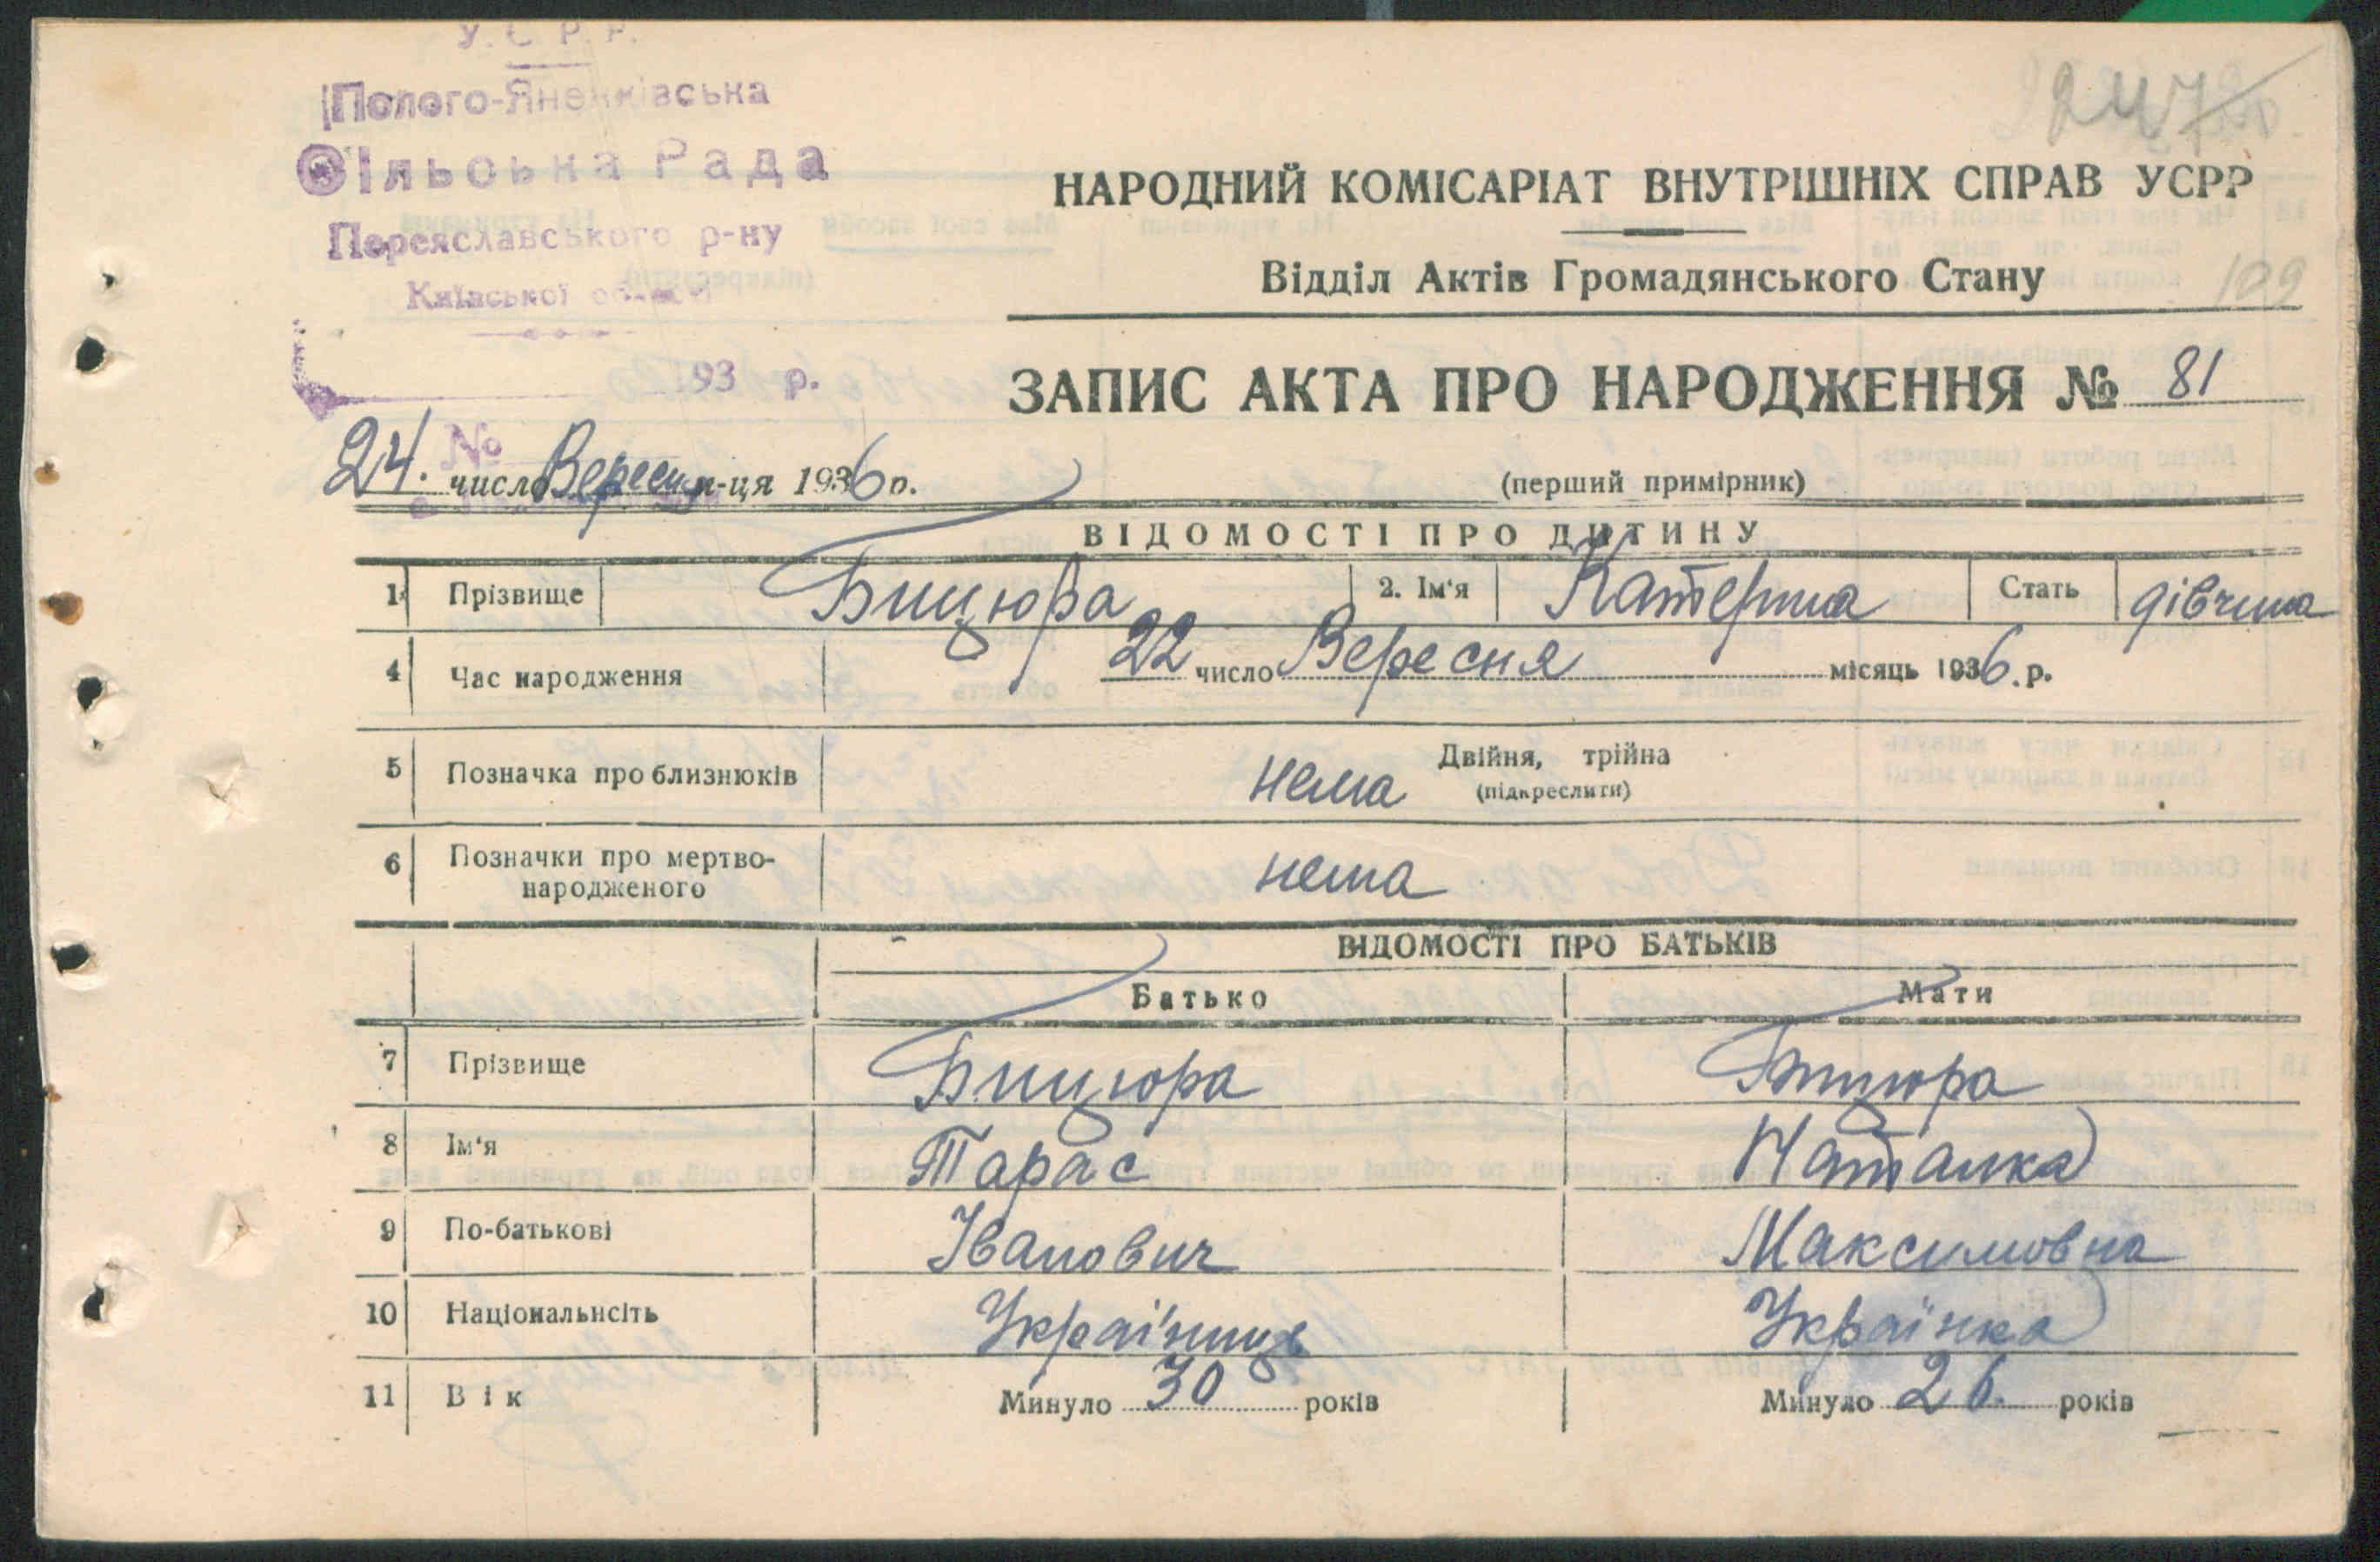 У. С. Р. Р.
Полого-Яненківська
Сільська Рада
Переяславського р-ну
Київської
193 р.
№
247
109
НАРОДНИЙ КОМІСАРІАТ ВНУТРІШНІХ СПРАВ УСРР
Відділ Актів Громадянського Стану
ЗАПИС АКТА ПРО НАРОДЖЕННЯ № 81
24. число Вересня м-ця 1936 р.
(перший примірник)
ВІДОМОСТІ ПРО ДИТИНУ
1 Прізвище Бицюра 2. Ім'я Катерина Стать дівчина
4 Час народження 22 число Вересня місяць 1936. р.
5 Позначка про близнюків нема Двійня, трійна
(підкреслити)
6 Позначки про мертво-
народженого нема
ВІДОМОСТІ ПРО БАТЬКІВ
Батько Мати
7 Прізвище Бицюра Бицюра
8 Ім'я Тарас Наталка
9 По-батькові Іванович Максимовна
10 Національнсіть Українець Українка
11 Вік Минуло 30 років Минуло 26. років